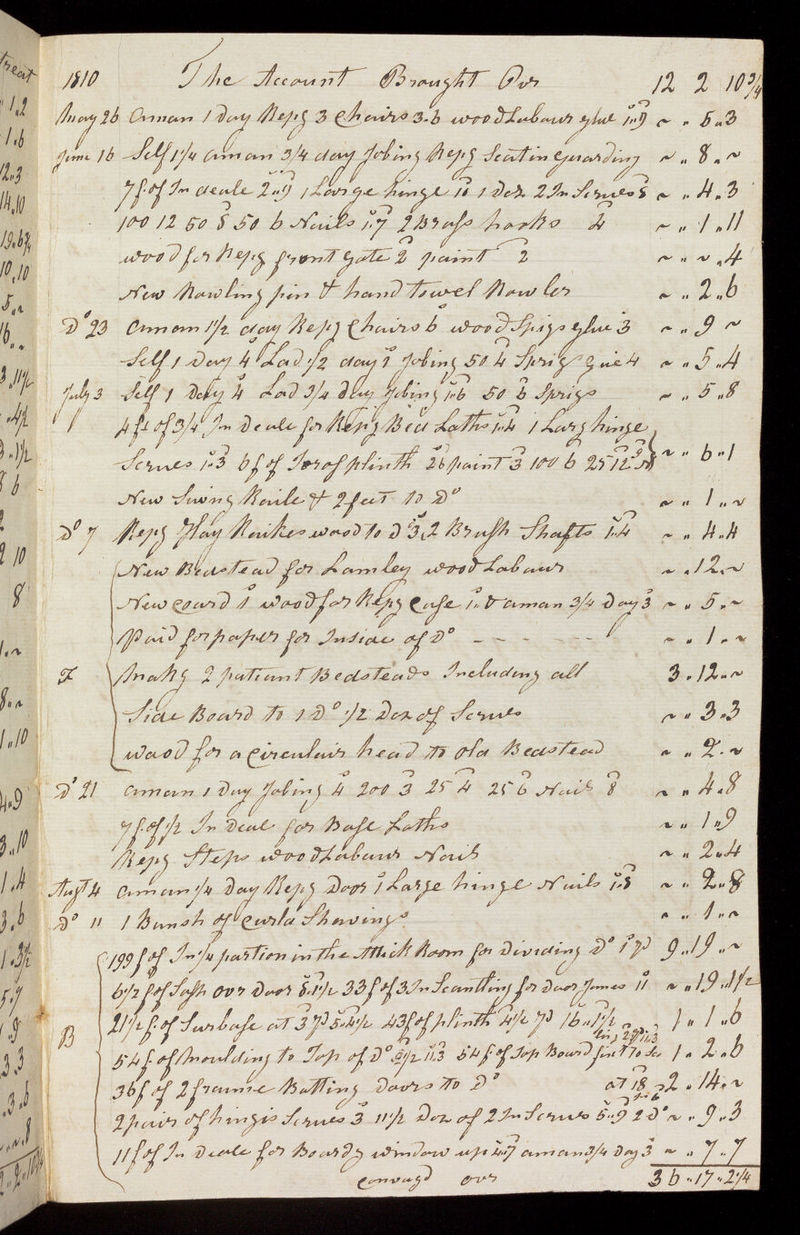 1810 The Account Brought Ovr 12 2 10 3/4
May 26 aman 1 Day Repg 3 Chairs 3.6 wood Labour glue 1..9 ~ .. 5 .. 3
June 16 Self 1/4 aman 3/4 day Jobing Repg Seat in guarding ~ .. 8 .. ~
7 f of In deale 2..9 1 Large hinge 1 Doz 2 In Scrues 8 ~ .. 4 .. 3
100 12 50 8 50 6 Nails 1..7 2 Brass hooks 4 ~ .. 1 .. 11
wood for Repg front gate 2 paint 2 ~ .. ~ .. 4
New Rowling pin & hand towel Rowler ~ .. 2 .. 6
Do 23 aman 1 1/2 day Repg Chairs 6 wood Sprigs glue 3 ~ .. 9 ~
Self 1 Day 4 Lad 1/2 day 1 Jobing 50 4 Sprigs glue 4 ~ .. 5 .. 4
July 3 Self 1 Day 4 Lad 3/4 day Jobing 1..6 50 6 Sprigs ~ .. 5 .. 8
4 ft of 3/4 In Deale for Repg Bed Laths 1..4 1 Larg hinge
Scrues 1..3 6 f of plinth 2 6 paint 3 100 6 25 12 ~ .. 6 .. 1
New Swing Raile & 2 feet to Do ~ .. 1 .. ~
Do 7 Repg Hay Raikes wood to Do 3. 2 Brush Shafts 1..4 ~ .. 4 .. 4
New Bedstead for Lamley wood Labour ~ .. 12 .. ~
New coard 1 wood for Repg Case 1.. & aman 3/4 Day 3 ~ .. 5 .. ~
Paid for paper for Inside of Do - - - - - ~ .. 1 .. ~
F Makg 2 patiant Bedsteads Including all 3 .. 12 .. ~
Side Board to 1 Do 1/2 Doz of Scrues ~ .. 3 .. 3
wood for a Circulair head to old Bedstead ~ .. 2 .. ~
Do 21 aman 1 Day Jobing 4 200 3 25 4 25 6 Nails 8 ~ .. 4 .. 8
7 f of 1/2 In deal for Base Laths ~ .. 1 .. 9
Repg Steps wood Labour Nails ~ .. 2 .. 4
Augt 4 aman 1/4 Day Repg Door 1 Large hinge Nails 1..8 ~ .. 2 .. 8
Do 11 1 Bunsh of Curld Shavings ~ .. 1 .. ~
199 f of In 1/4 partion in the Attick Room for Dividing Do 9 .. 19 .. ~
6 1/2 f of Sash ovr Door 8..1 1/2 33 f of 3 In Scantling for Door Jomes 11 ~ .. 19 .. 1 1/2
B 21 1/2 f of Surbase at 3 pd 5..4 1/2 43 f of plinth 4 1/2 pd 16..1 1/2 1 .. 1 .. 6
54 f of Moulding to Top of Do 2 1/2 11..3 54 f of Top Board 1 .. 2 .. 6
36 f of 2 frame Batting Doors to Do at 18 2 .. 14 .. ~
2 pair of hingis Scrues 3 11 1/2 Doz of 2 In Scrues 5..9 2 Do ~ .. 9 .. 3
11 f of In Deale for Boardg window up 4..7 aman 3/4 Day 3 ~ .. 7 .. 7
convayd ovr 36 .. 17 .. 2 1/4